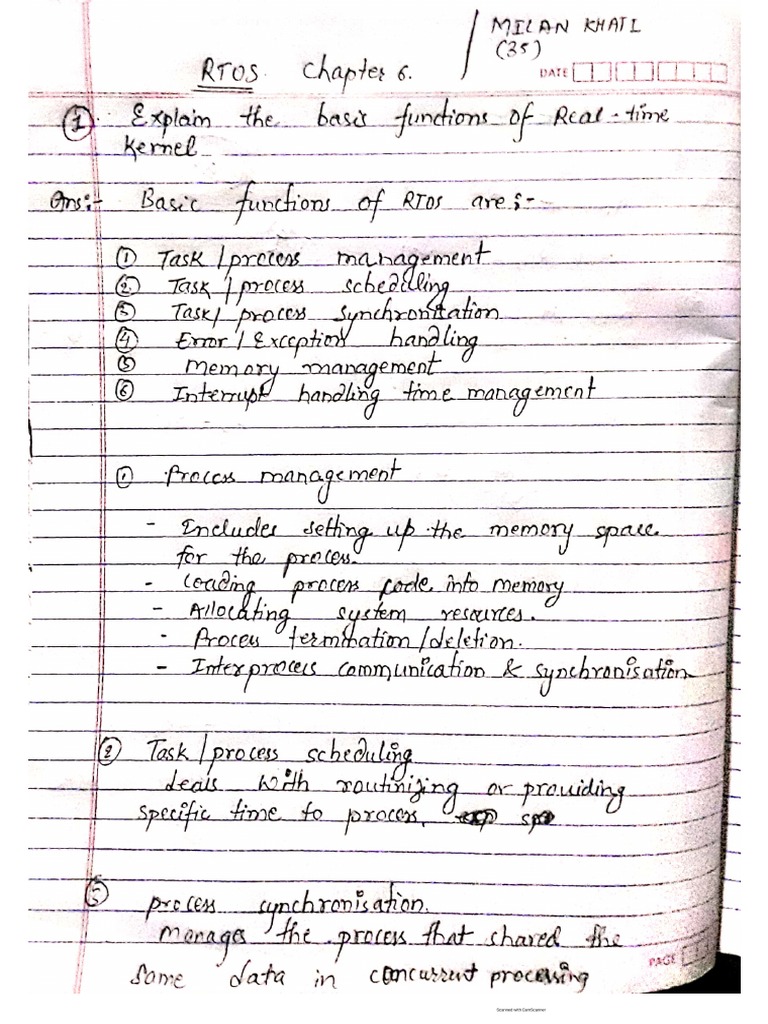 MILAN KHATI
(35)
RTOS Chapter 6.
DATE
① Explain the basis functions of Real-time
Kernel
Ans:- Basic functions of RTOS are:-
① Task/process management
② Task/process scheduling
③ Task/process synchronisation
④ Error/Exception handling
⑤ Memory management
⑥ Interrupt handling time management
① Process management
- Includes setting up the memory space
for the process.
- Loading process code into memory
- Allocating system resources.
- Process termination/deletion.
- Interprocess communication & synchronisation
② Task/process scheduling
deals with routinizing or providing
specific time to process.
③ process synchronisation.
manages the process that shared the
same data in concurrent processing
PAGE
Scanned with CamScanner